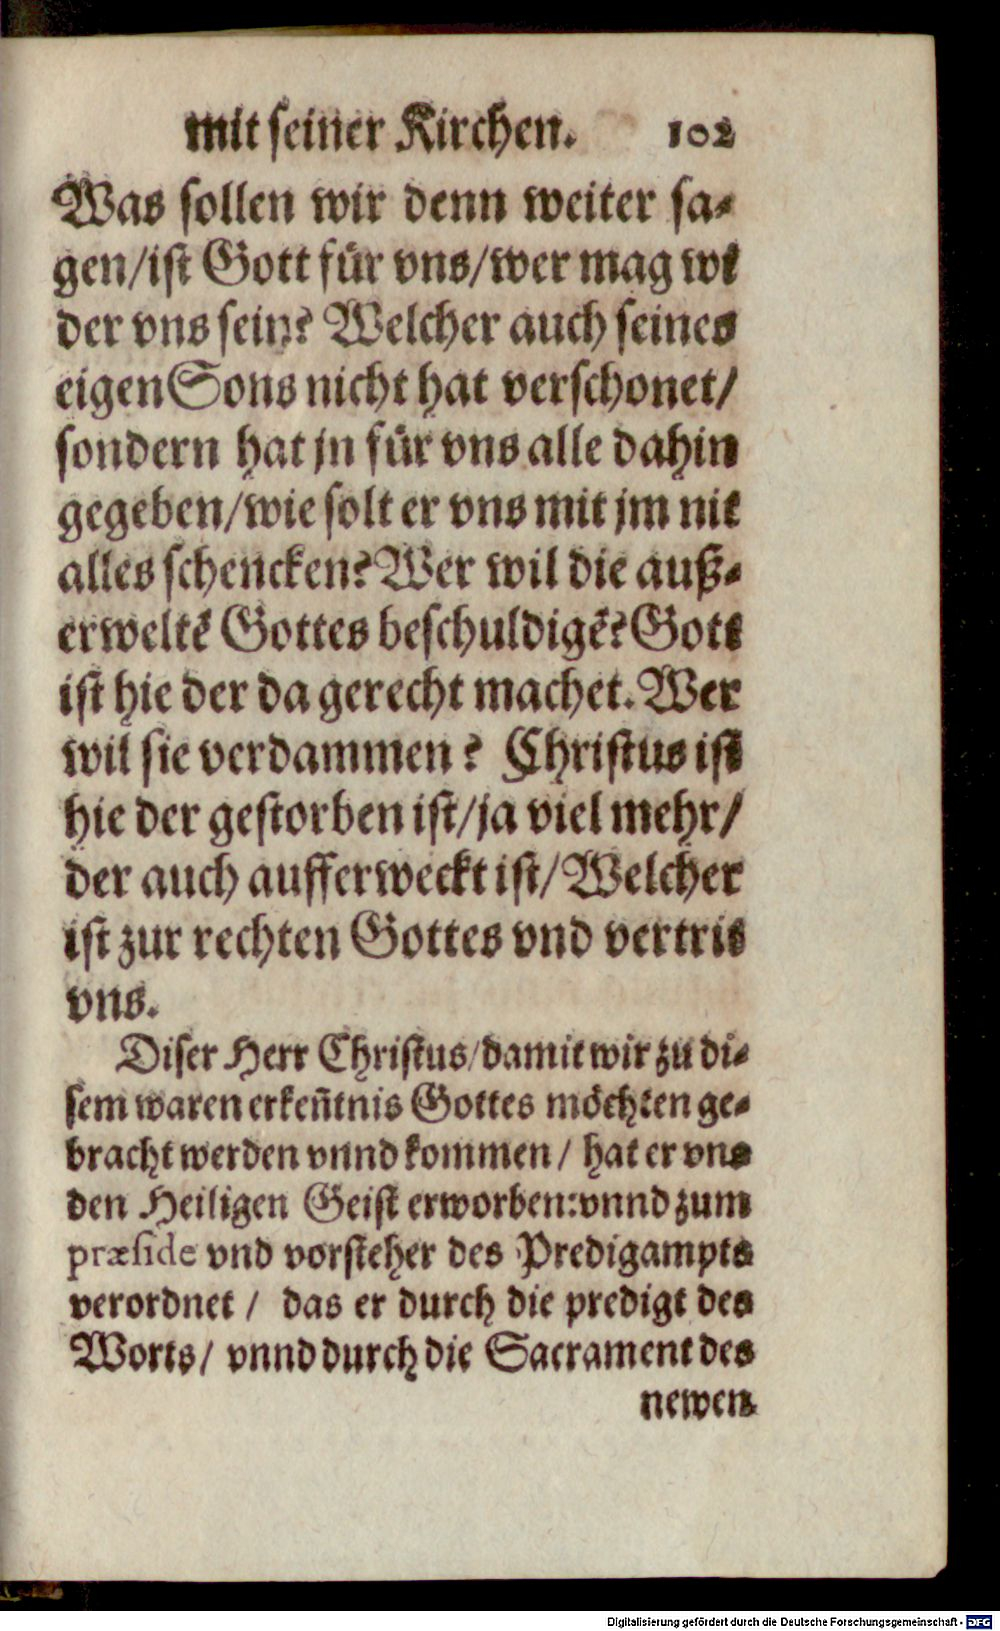 mit seiner Kirchen. 102
Was sollen wir denn weiter sa⸗
gen/ist Gott für vns/wer mag wi
der vns sein? Welcher auch seines
eigen Sons nicht hat verschonet/
sondern hat jn für vns alle dahin
gegeben/wie solt er vns mit jm nit
alles schencken? Wer wil die auß⸗
erweltẽ Gottes beschuldigẽ? Gott
ist hie der da gerecht machet. Wer
wil sie verdammen? Christus ist
hie der gestorben ist/ja viel mehr/
der auch aufferweckt ist/Welcher
ist zur rechten Gottes vnd vertrit
vns.
Diser Herr Christus/damit wir zu di⸗
sem waren erkeñtnis Gottes möchten ge⸗
bracht werden vnnd kommen/ hat er vns
den Heiligen Geist erworben:vnnd zum
præside vnd vorsteher des Predigampts
verordnet/ das er durch die predigt des
Worts/ vnnd durch die Sacrament des
newen
Digitalisierung gefördert durch die Deutsche Forschungsgemeinschaft - DFG